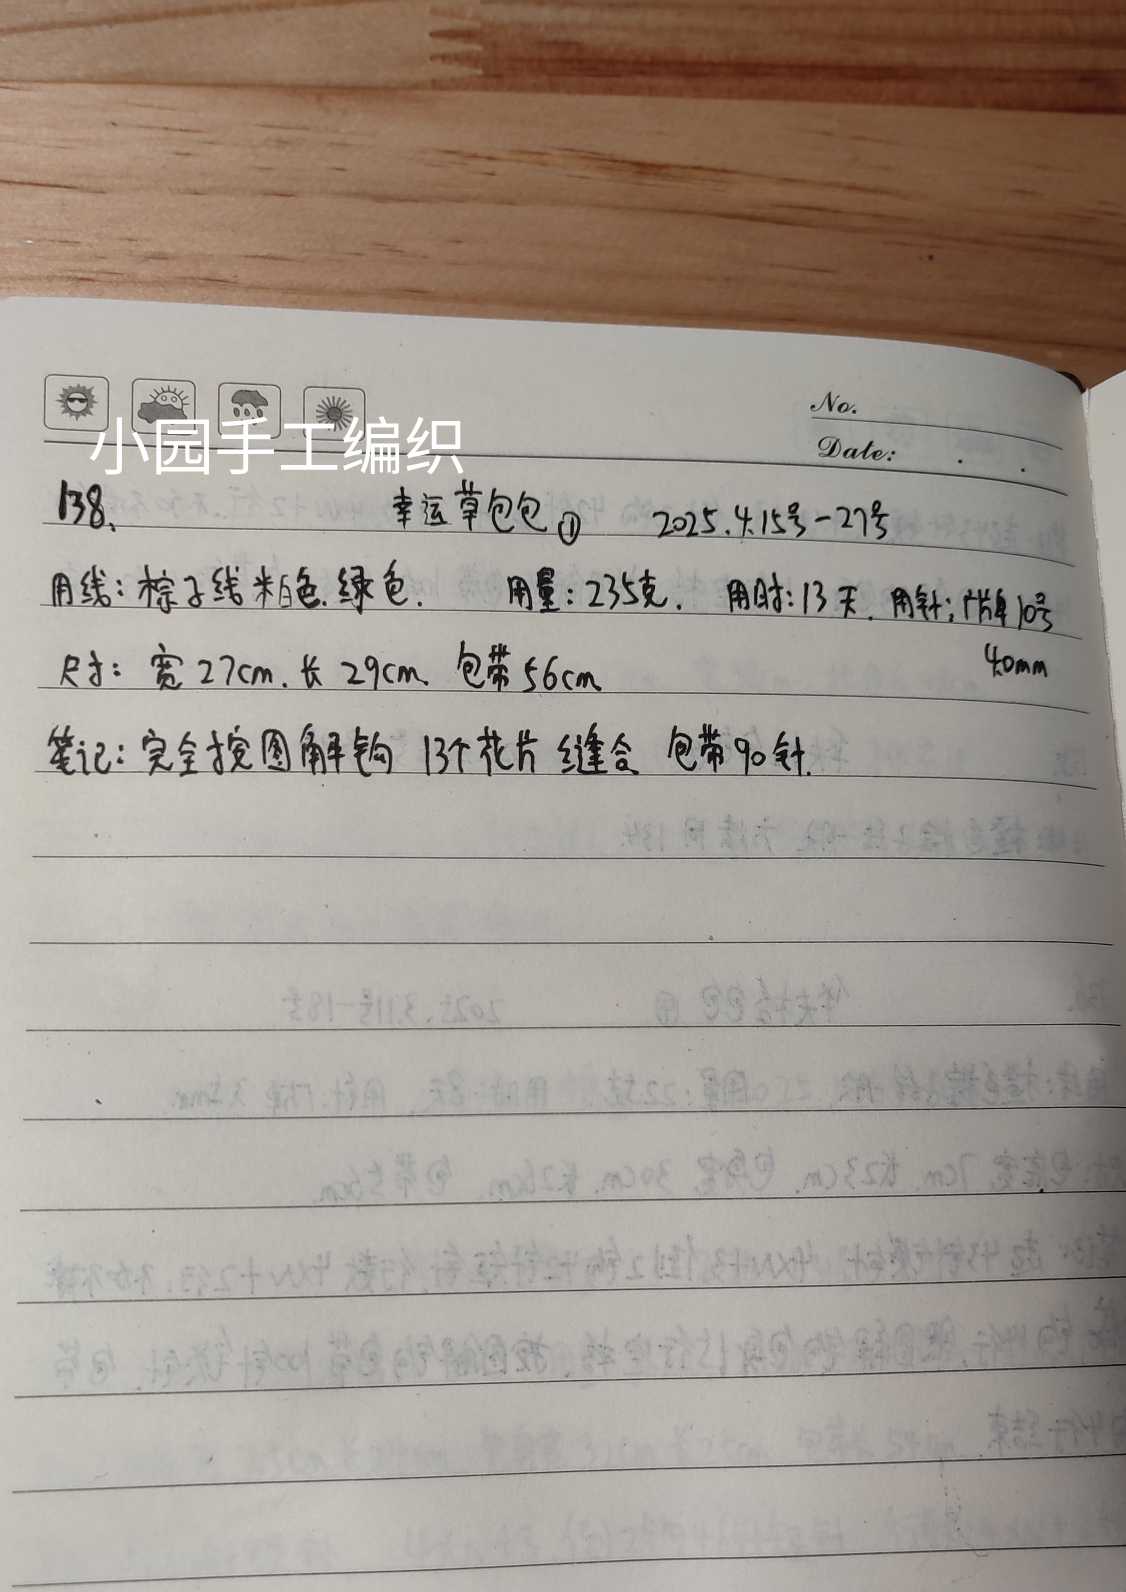 No.
Date: . .
小园手工编织
138、 幸运草包包① 2025.4.15号-27号
用线：棕子线 米白色.绿色. 用量：235克. 用时：13天. 用针：广牌10号
4.0mm
尺寸：宽27cm.长29cm. 包带56cm
笔记：完全按图解钩 13个花片 缝合 包带90针.